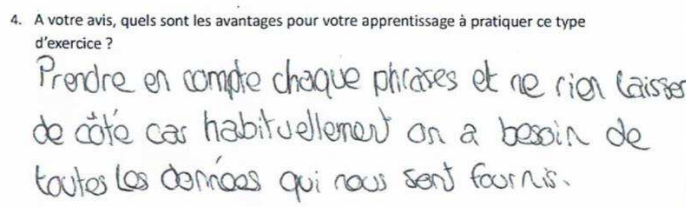 4. A votre avis, quels sont les avantages pour votre apprentissage à pratiquer ce type
d'exercice ?
Prendre en compte chaque phrases et ne rien laisser
de côté car habituellement on a besoin de
toutes les données qui nous sont fournis.